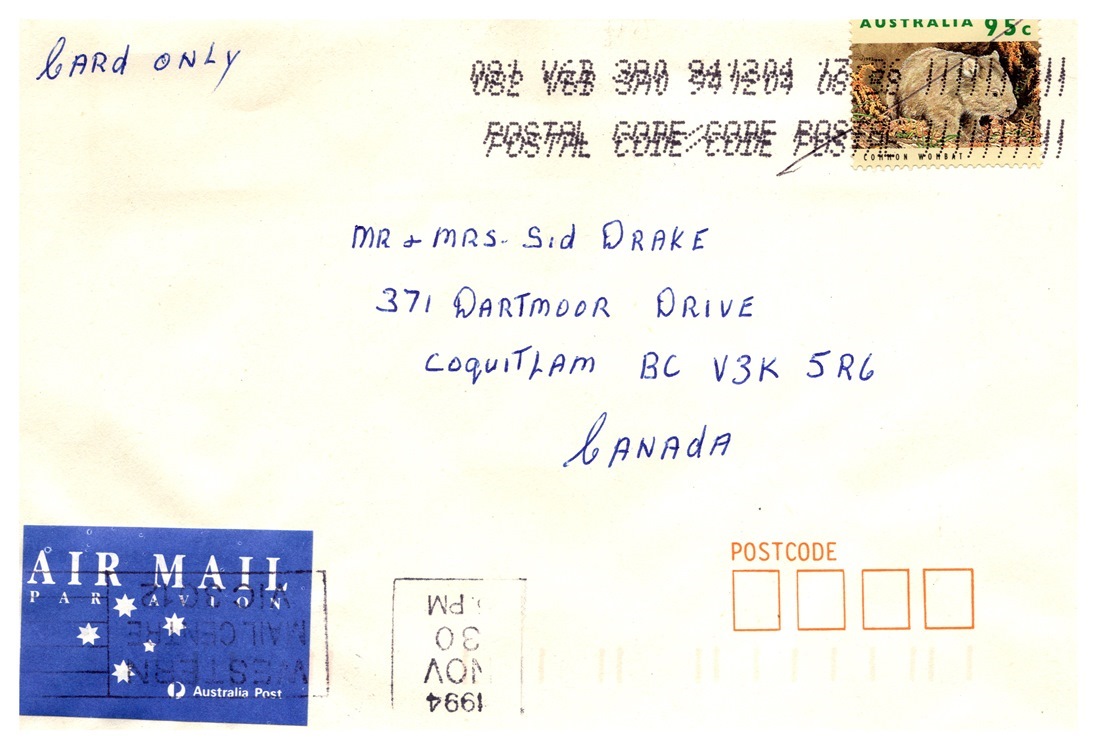 CARd ONLY
AUSTRALIA 95c
COMMON WOMBAT
941204
POSTAL CODE/CODE POSTAL
MR & MRS. Sid DRAKE
371 DARTMOOR DRIVE
COQUITLAM BC V3K 5R6
CANAdA
AIR MAIL
PAR AVION
Australia Post
POSTCODE
WESTERN
MAIL CENTRE
VIC 3012
1994
NOV
30
PM